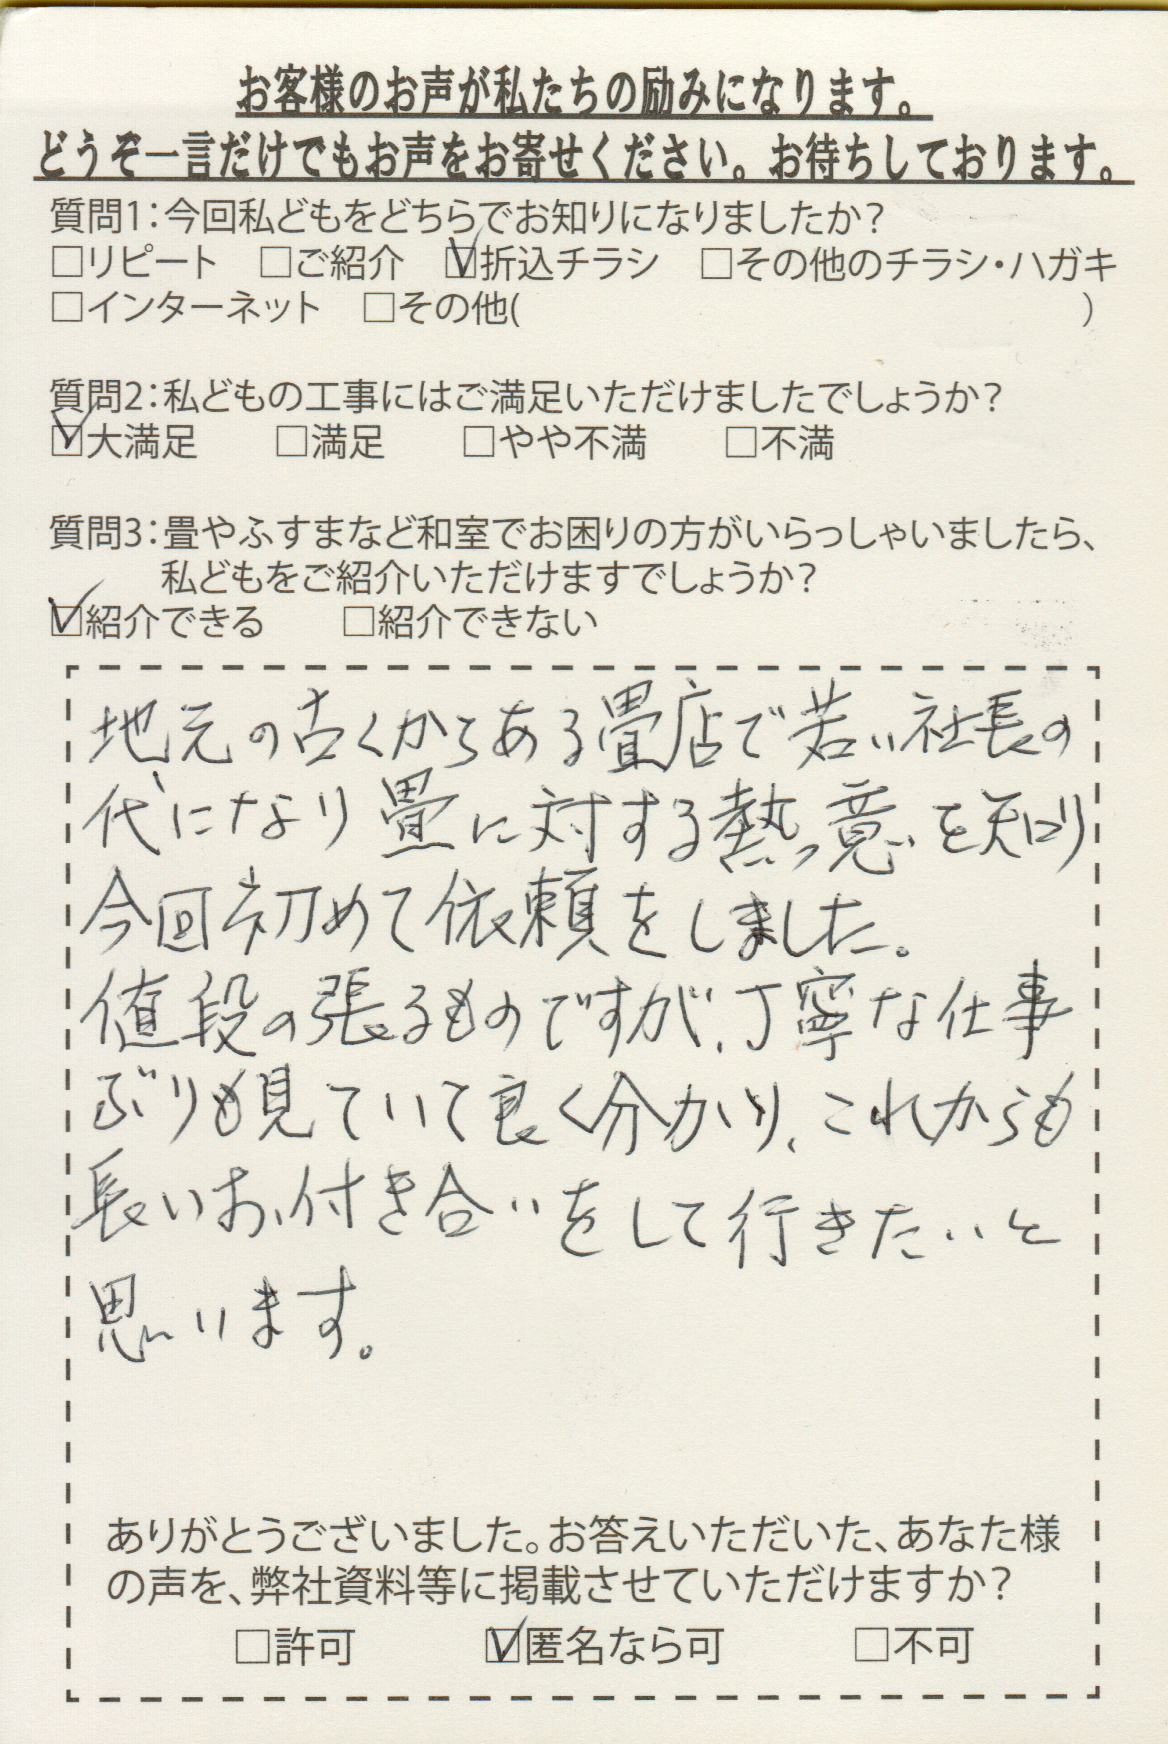 お客様のお声が私たちの励みになります。
どうぞ一言だけでもお声をお寄せください。お待ちしております。
質問1:今回私どもをどちらでお知りになりましたか?
□リピート □ご紹介 ☑折込チラシ □その他のチラシ・ハガキ
□インターネット □その他( )
質問2:私どもの工事にはご満足いただけましたでしょうか?
☑大満足 □満足 □やや不満 □不満
質問3:畳やふすまなど和室でお困りの方がいらっしゃいましたら、
私どもをご紹介いただけますでしょうか?
☑紹介できる □紹介できない
地元の古くからある畳店で若い社長の
代になり畳に対する熱意を知り
今回初めて依頼をしました。
値段の張るものですが、丁寧な仕事
ぶりも見ていて良く分かり、これからも
長いお付き合いをして行きたいと
思います。
ありがとうございました。お答えいただいた、あなた様
の声を、弊社資料等に掲載させていただけますか?
□許可 ☑匿名なら可 □不可